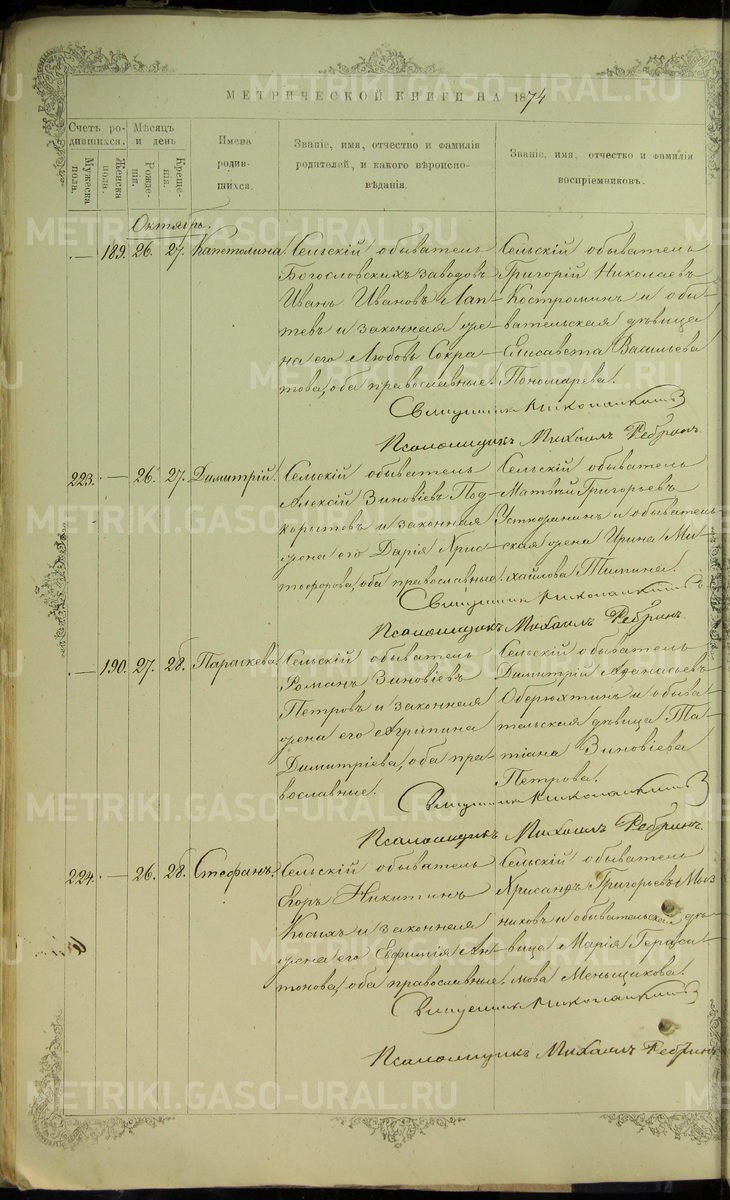 МЕТРИЧЕСКОЙ КНИГИ НА 1874
Счетъ родившихся.
Мужеска пола.
Женска пола.
Мѣсяцъ и день
Рожденія.
Крещенія.
Имена родившихся.
Званіе, имя, отчество и фамилія родителей, и какого вѣроисповѣданія.
Званіе, имя, отчество и фамилія воспріемниковъ.
Октябрь.
— 189. 26. 27. Капетолина
Сельскій обыватель
Богословскихъ заводовъ
Иванъ Ивановъ Лап-
тевъ и законная же-
на его Любовь Сокра-
това, оба православные.
Сельскій обыватель
Григорій Николаевъ
Костроминъ и обы-
вательская дѣвица
Елисавета Васильева
Пономарева.
Священник
Псаломщикъ Михаилъ Ребринъ.
223. — 26. 27. Димитрій.
Сельскій обыватель
Алексій Зиновіевъ Под-
корытовъ и законная
жена его Дарія Хрис-
тофорова, оба православные.
Сельскій обыватель
Матвей Григорьевъ
Устюжанинъ и обыватель-
ская жена Ирина Ми-
хайлова Тетина.
Священник
Псаломщикъ Михаилъ Ребринъ.
— 190. 27. 28. Параскева.
Сельскій обыватель
Романъ Зиновіевъ
Петровъ и законная
жена его Агрипина
Димитріева, оба пра-
вославные.
Сельскій обыватель
Димитрій Афанасьевъ
Оберюхтинъ и обыва-
тельская дѣвица Та-
тіана Зиновіева
Петрова.
Священник
Псаломщикъ Михаилъ Ребринъ.
224. — 26. 28. Стефанъ.
Сельскій обыватель
Егоръ Никитинъ
Косыхъ и законная
жена его Евфимія Ан-
тонова, оба православные.
Сельскій обыватель
Хрисанфъ Григорьевъ
и обывательская дѣ-
вица Марія Гераси-
мова Меньщикова.
Священник
Псаломщикъ Михаилъ Ребринъ
METRIKI.GASO-URAL.RU